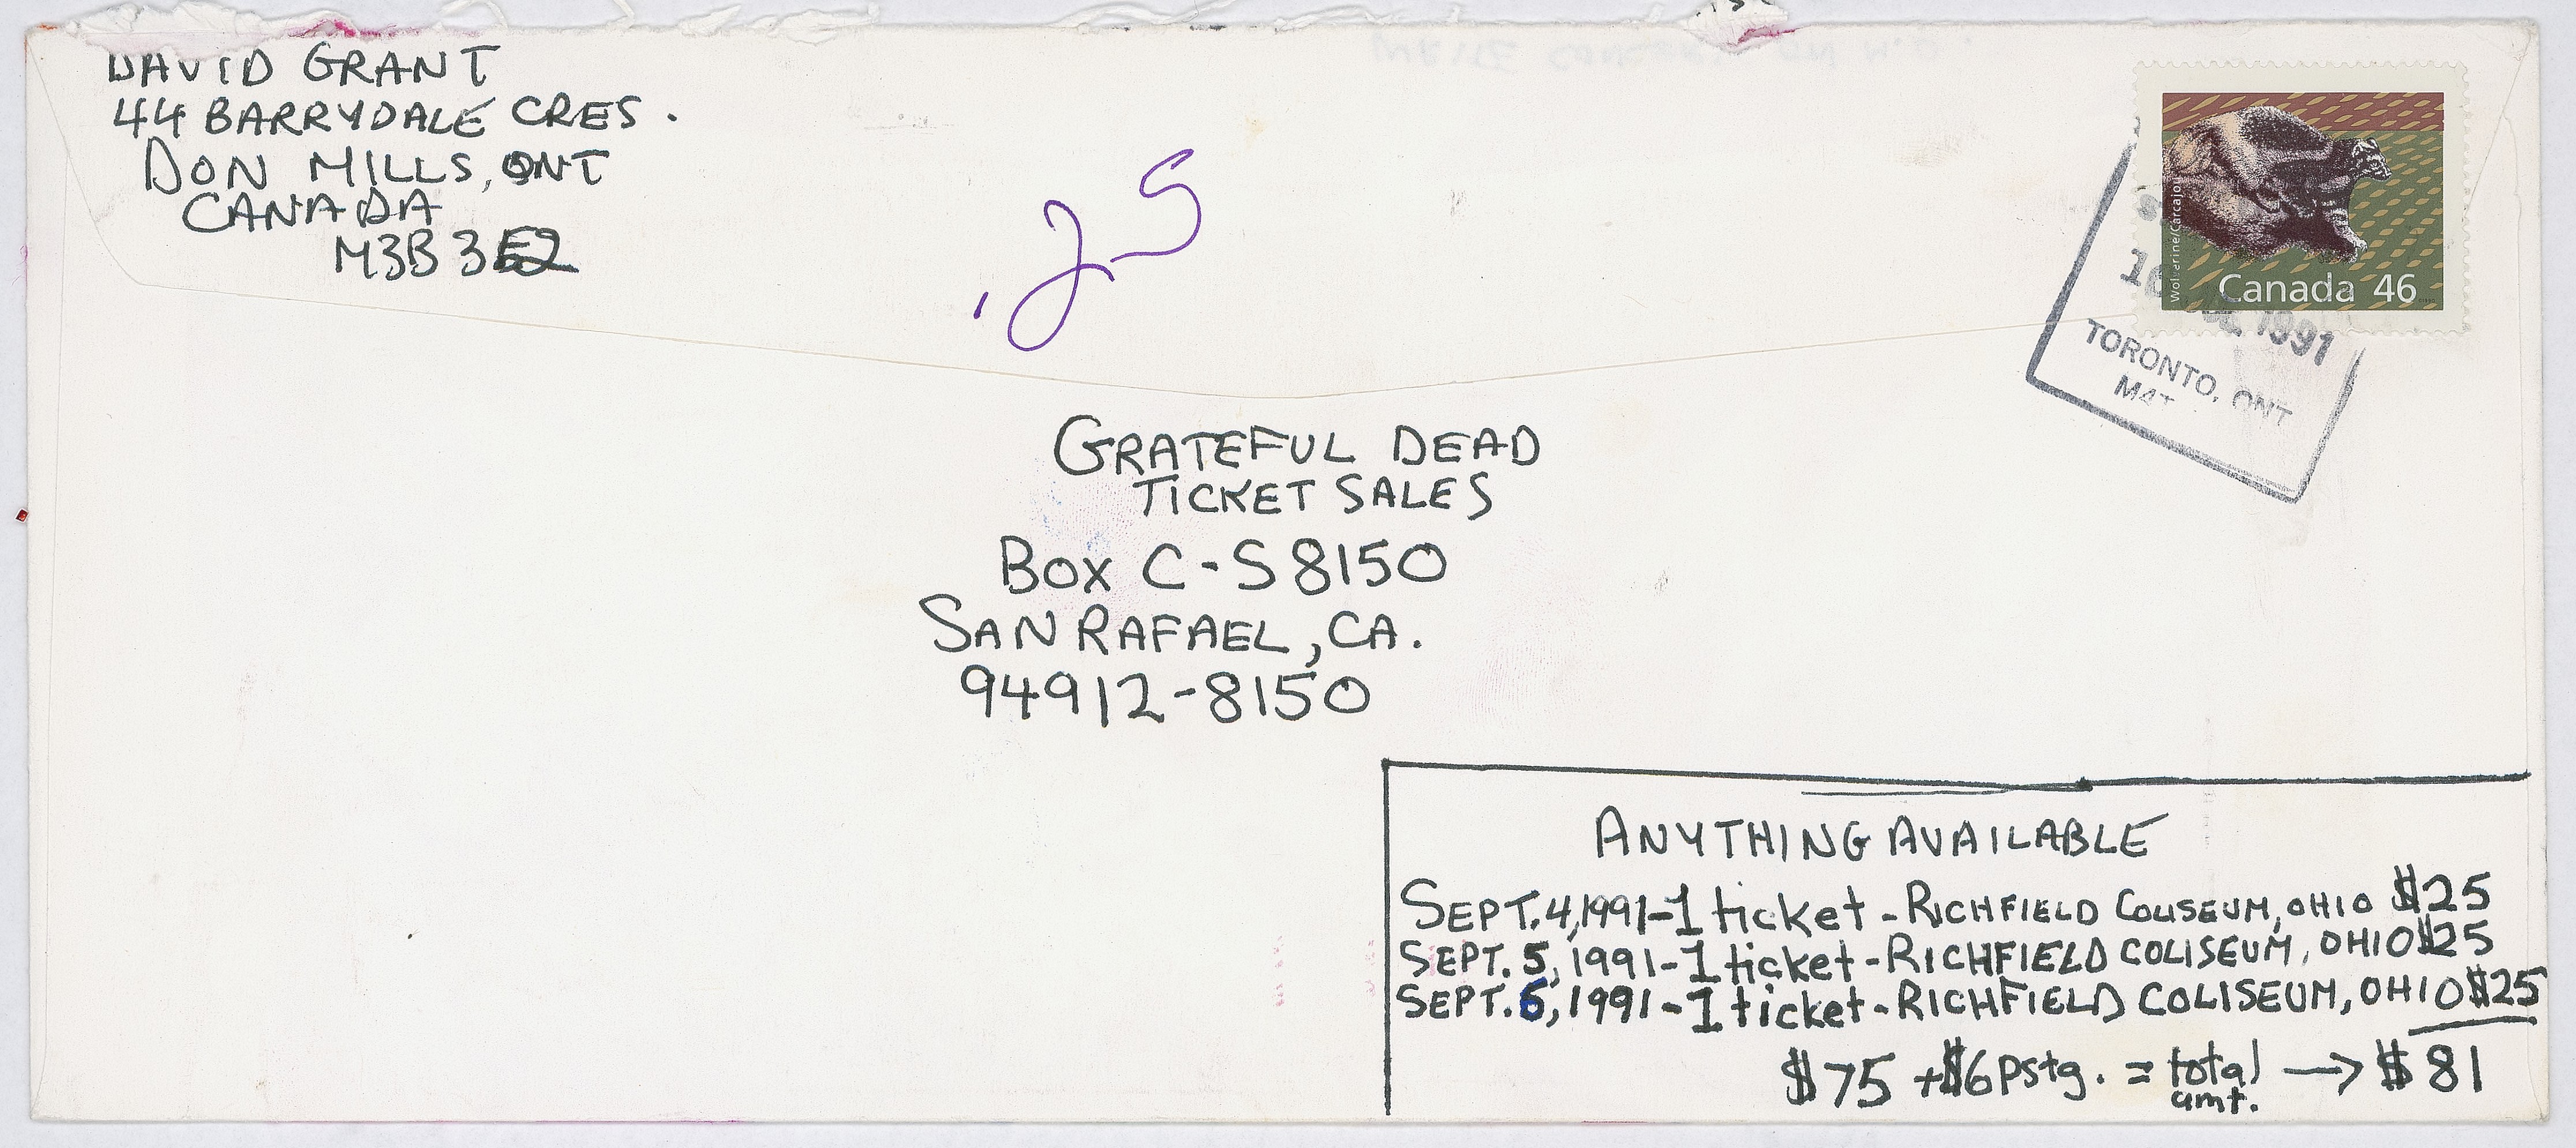 DAVID GRANT
44 BARRYDALE CRES.
DON MILLS, ONT
CANADA
M3B 3E2
Wolverine/Carcajou
Canada 46
1991
TORONTO, ONT
M4T
GRATEFUL DEAD
TICKET SALES
BOX C-S 8150
SAN RAFAEL, CA.
94912-8150
ANYTHING AVAILABLE
SEPT. 4, 1991 - 1 ticket - RICHFIELD COLISEUM, OHIO $25
SEPT. 5, 1991 - 1 ticket - RICHFIELD COLISEUM, OHIO $25
SEPT. 6, 1991 - 1 ticket - RICHFIELD COLISEUM, OHIO $25
$75 + $6 pstg. = total amt. → $81